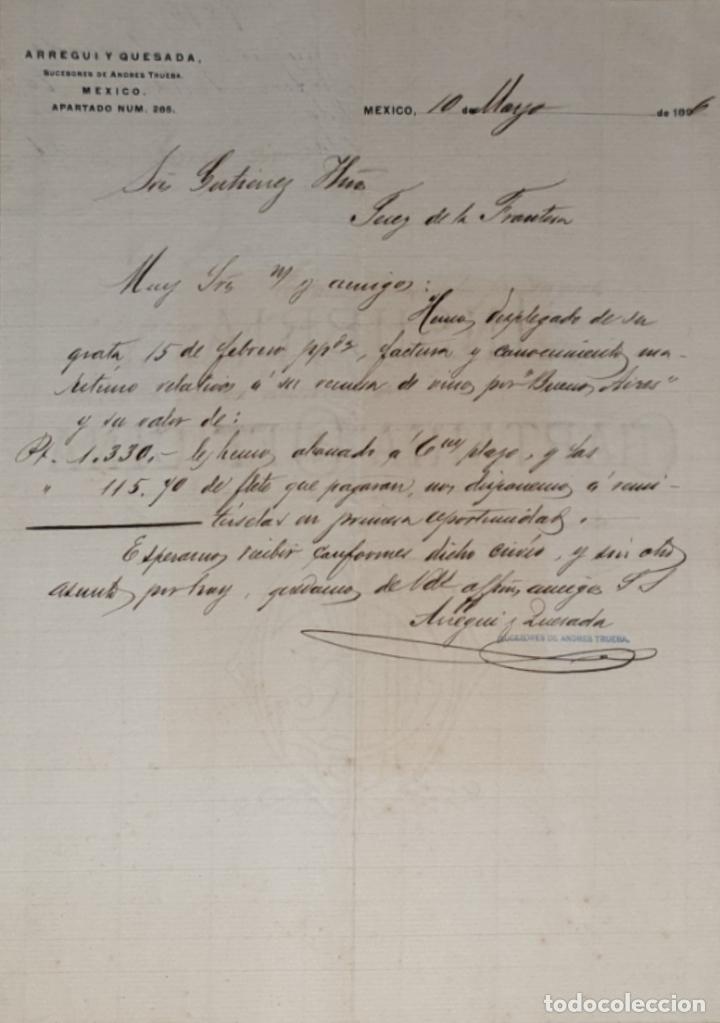 ARREGUI Y QUESADA,
SUCESORES DE ANDRES TRUEBA.
MEXICO.
APARTADO NUM. 265.
MEXICO, 10 de Mayo de 1896
Sres Gutierrez Hnos
Jerez de la Frontera
Muy Sres ns y amigos:
Hemos desplegado de su
grata 15 de febrero ppdo, factura y conocimiento ma-
rítimo relativos á su remesa de vinos por "Buenos Aires"
y su valor de:
Pts. 1.330,- les hemos abonado á 6 m/ plazo, y las
" 115.70 de flete que pagaran, nos disponemos á remi-
tírselas en primera oportunidad.
Esperamos recibir conformes dicho envio, y sin otro
asunto por hoy, quedamos de Vds affmos amigos S S
Arregui y Quesada
SUCESORES DE ANDRES TRUEBA.
todocoleccion